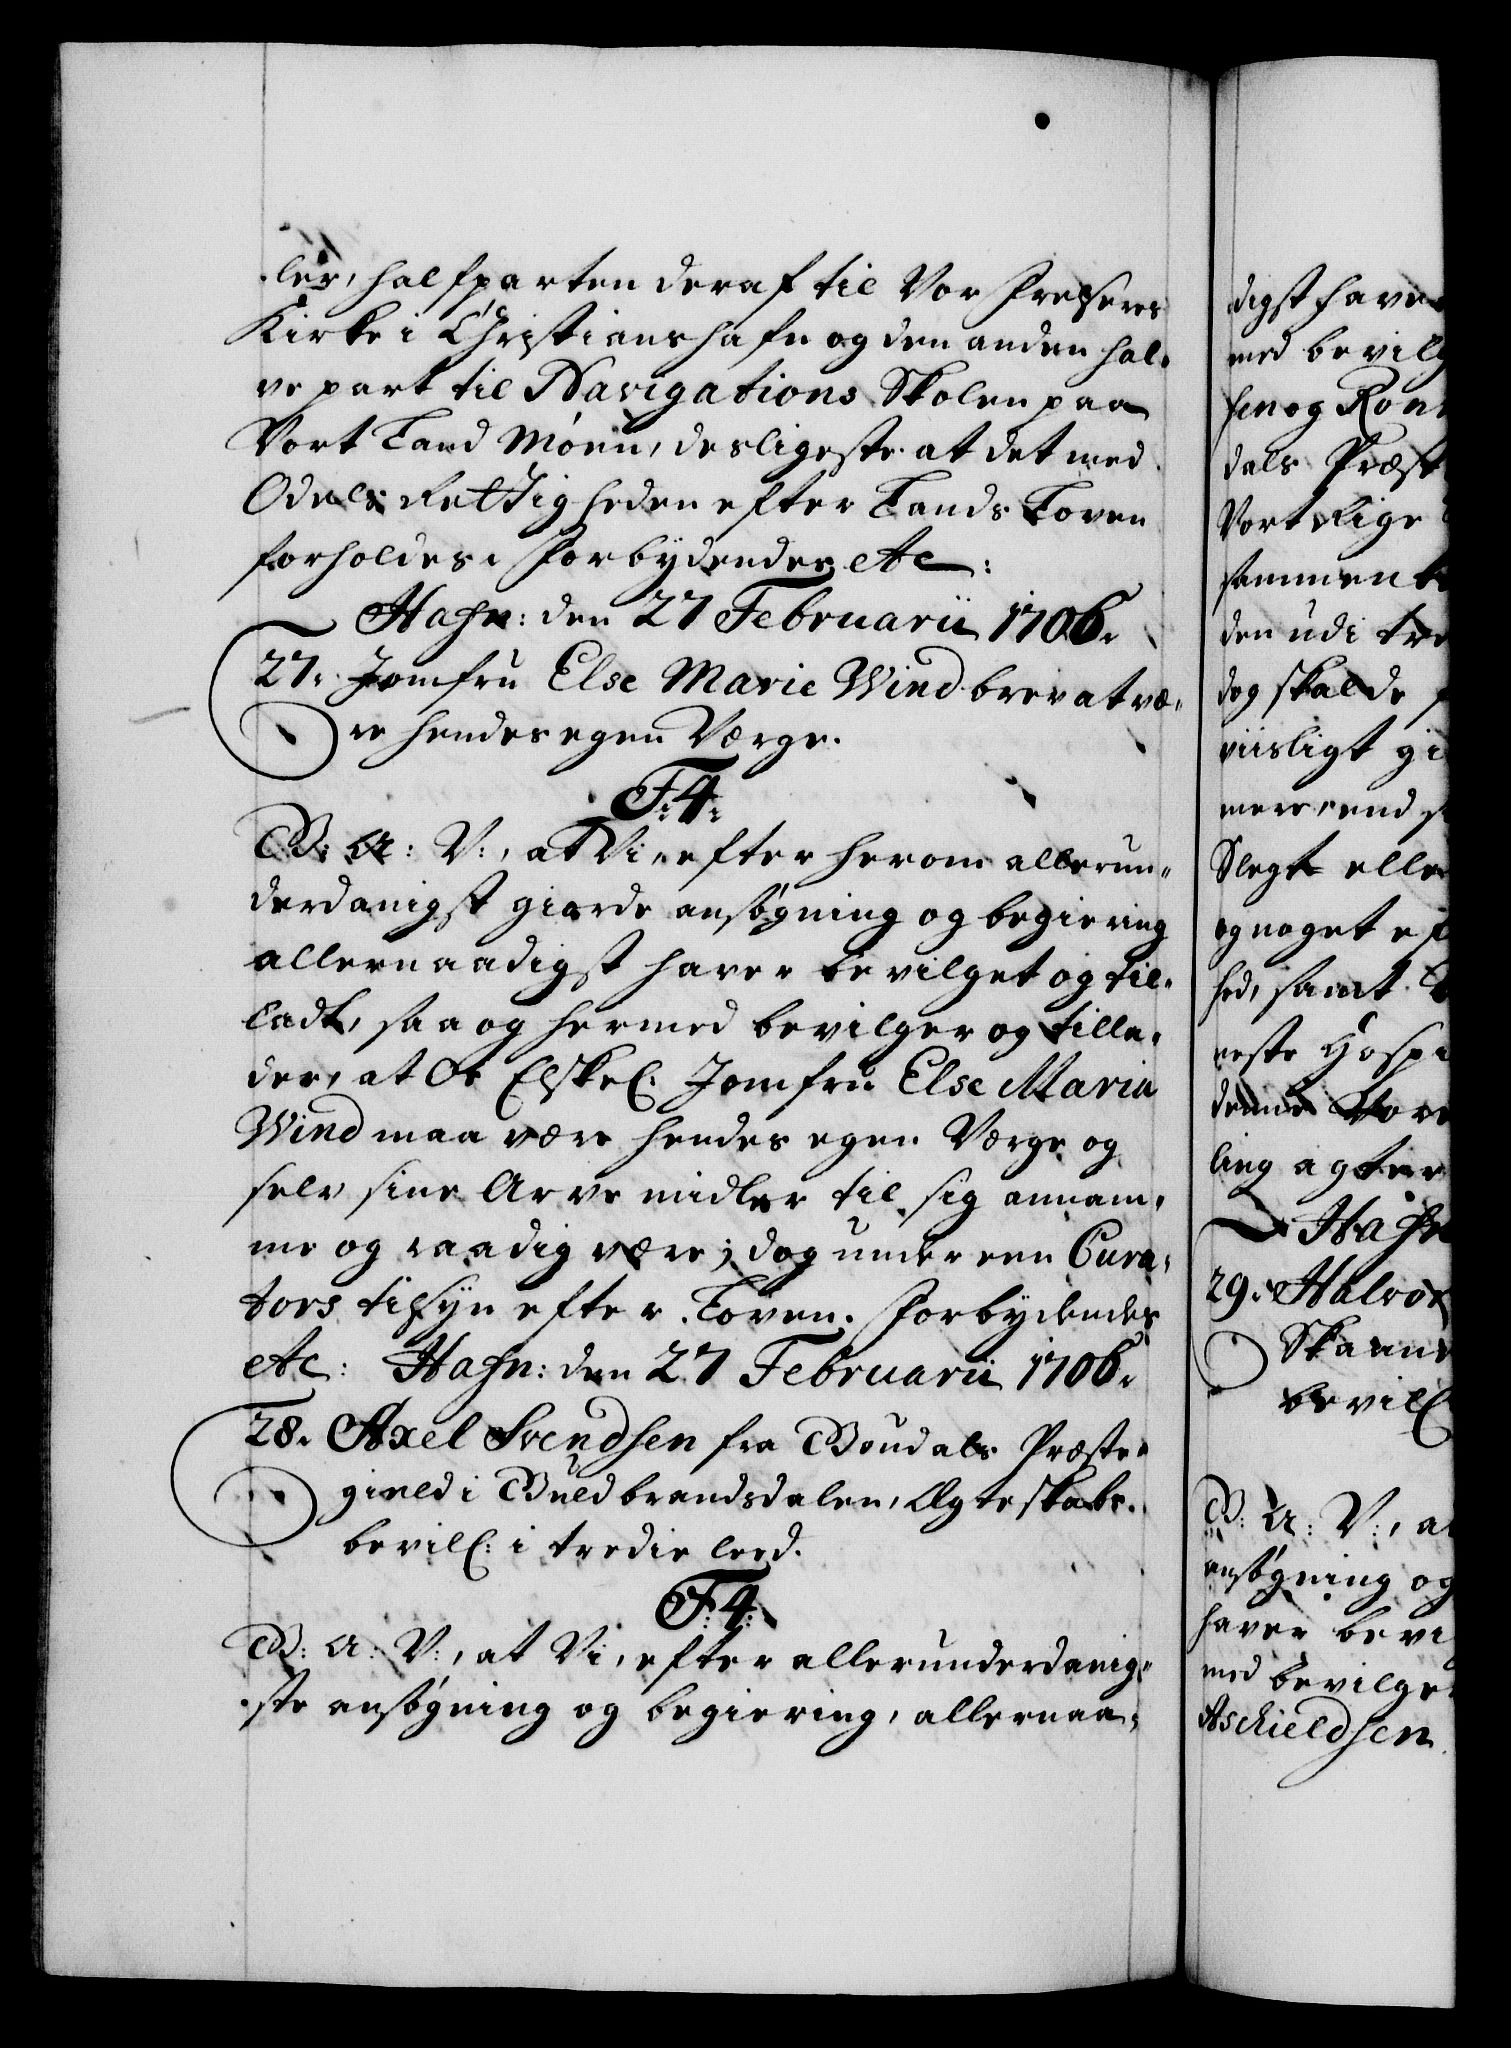 ler, halfparten deraf til Vor Frelseres
Kirke i Christianshafn og den anden hal-
ve part til Navigations Skolen paa
Vort Land Møen, desligeste at det med
Odels Rettigheden efter Lands Loven
forholdes, Forbydendes etc:
Hafn: den 27 Februarii 1706.
27. Jomfru Else Marie Wind brev at væ-
re hendes egen Værge.
F:4:
G: A: V:, at Vi, efter herom allerun-
derdanigst giorde ansøgning og begiering
allernaadigst haver bevilget og til-
ladt, saa og hermed bevilger og tilla-
der, at Os Elskel. Jomfru Else Maria
Wind maa være hendes egen Værge og
selv sine Arve midler til sig annam-
me og raadig være; dog under een Cura-
tors tilsyn efter Loven. Forbydendes
etc: Hafn: den 27 Februarii 1706.
28. Axel Svendsen fra Goudals Præste-
gield i Guldbrandsdalen, Ægteskabs-
bevill: i tredie leed.
F:4:
G: A: V:, at Vi, efter allerunderdanig-
ste ansøgning og begiering, allernaa-
digst have
med bevilg
sen og Ron
dals Præst
Vort Rige
sammen
den udi tre
dog skal de
viisligt gi
mere, end
Slegt elle
og noget ef
hed, samt
neste Hospi
denne Vore
ling agter
Hafn
29. Halvor
Skaan
bevil
G: A: V:, at
ansøgning og
haver bevi
med bevilge
Aschieldsen